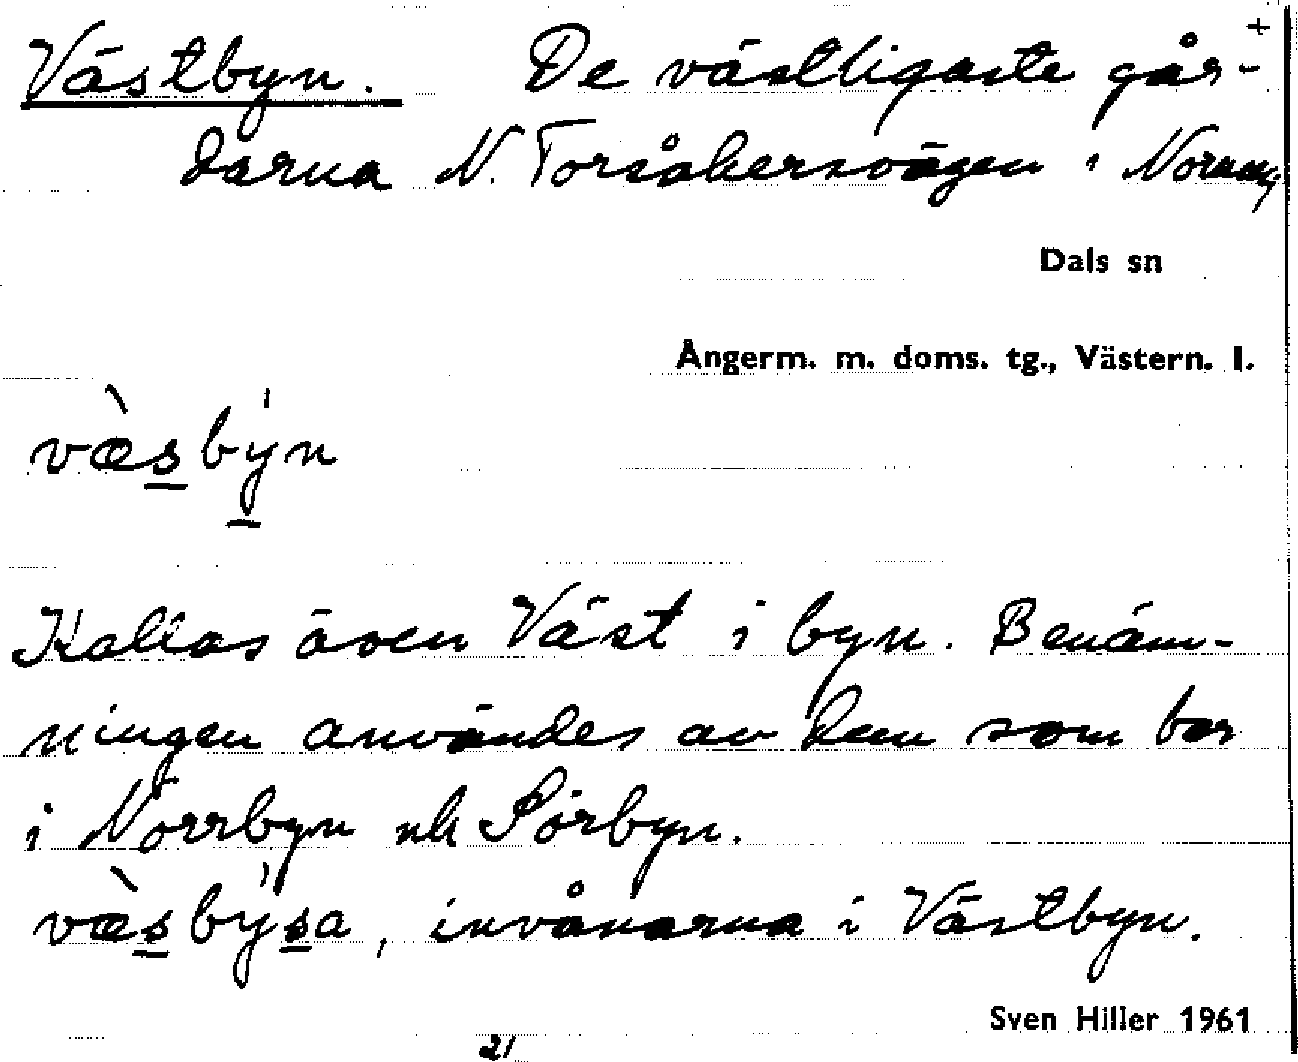 Västbyn. De västligaste går- +
darna N. Torsåkersvägen i Noräng
Dals sn
Ångerm. m. doms. tg., Västern. l.
væ̀sbýn
Kallas även Väst i byn. Benäm-
ningen användes av dem som bor
i Norrbyn och Sörbyn.
væ̀sbýsa, invånarna i Västbyn.
Sven Hiller 1961
21